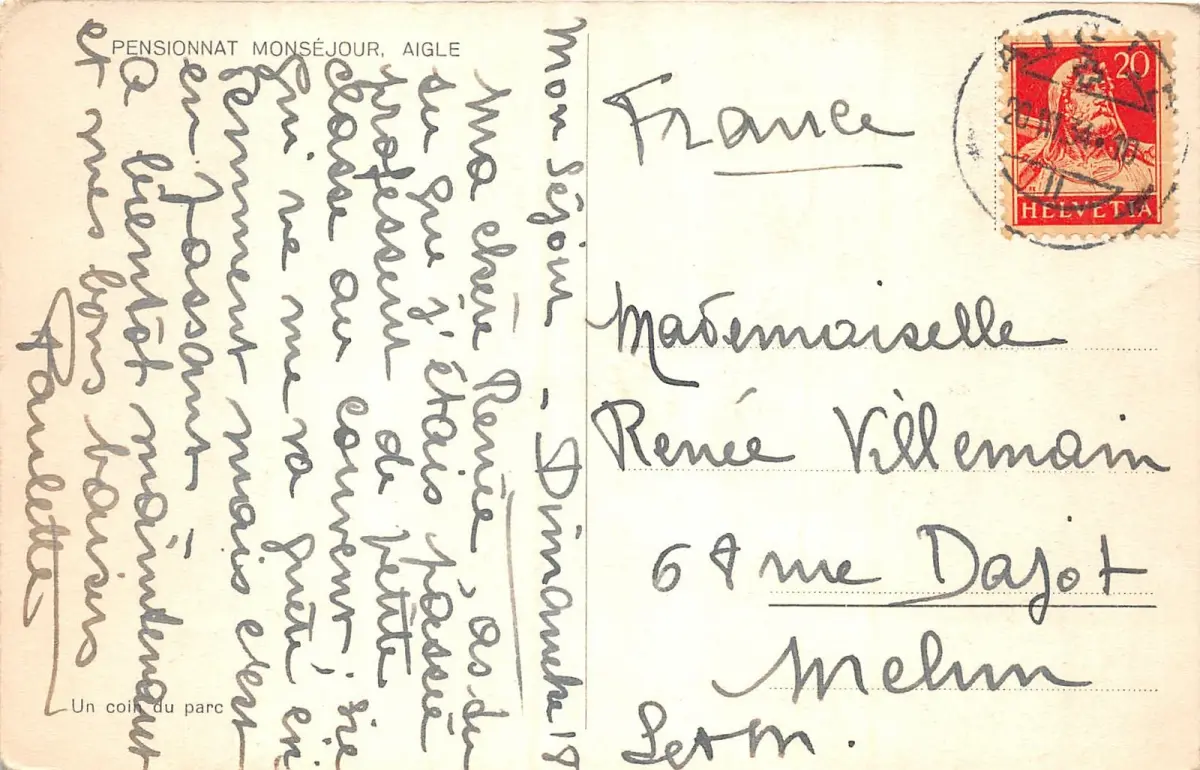 PENSIONNAT MONSÉJOUR, AIGLE
Mon Séjour - Dimanche 18
Ma chère Renée, as du
su que j'étais passée
professeur de petite
classe au couvent,
qui ne me va guère, en
permment mais c'est
en passant -
A bientôt maintenant
et mes bons baisers
Paulette
Un coin du parc
France
Mademoiselle
Renée Villemain
68 rue Dajot
Melun
S et M.
20
HELVETIA